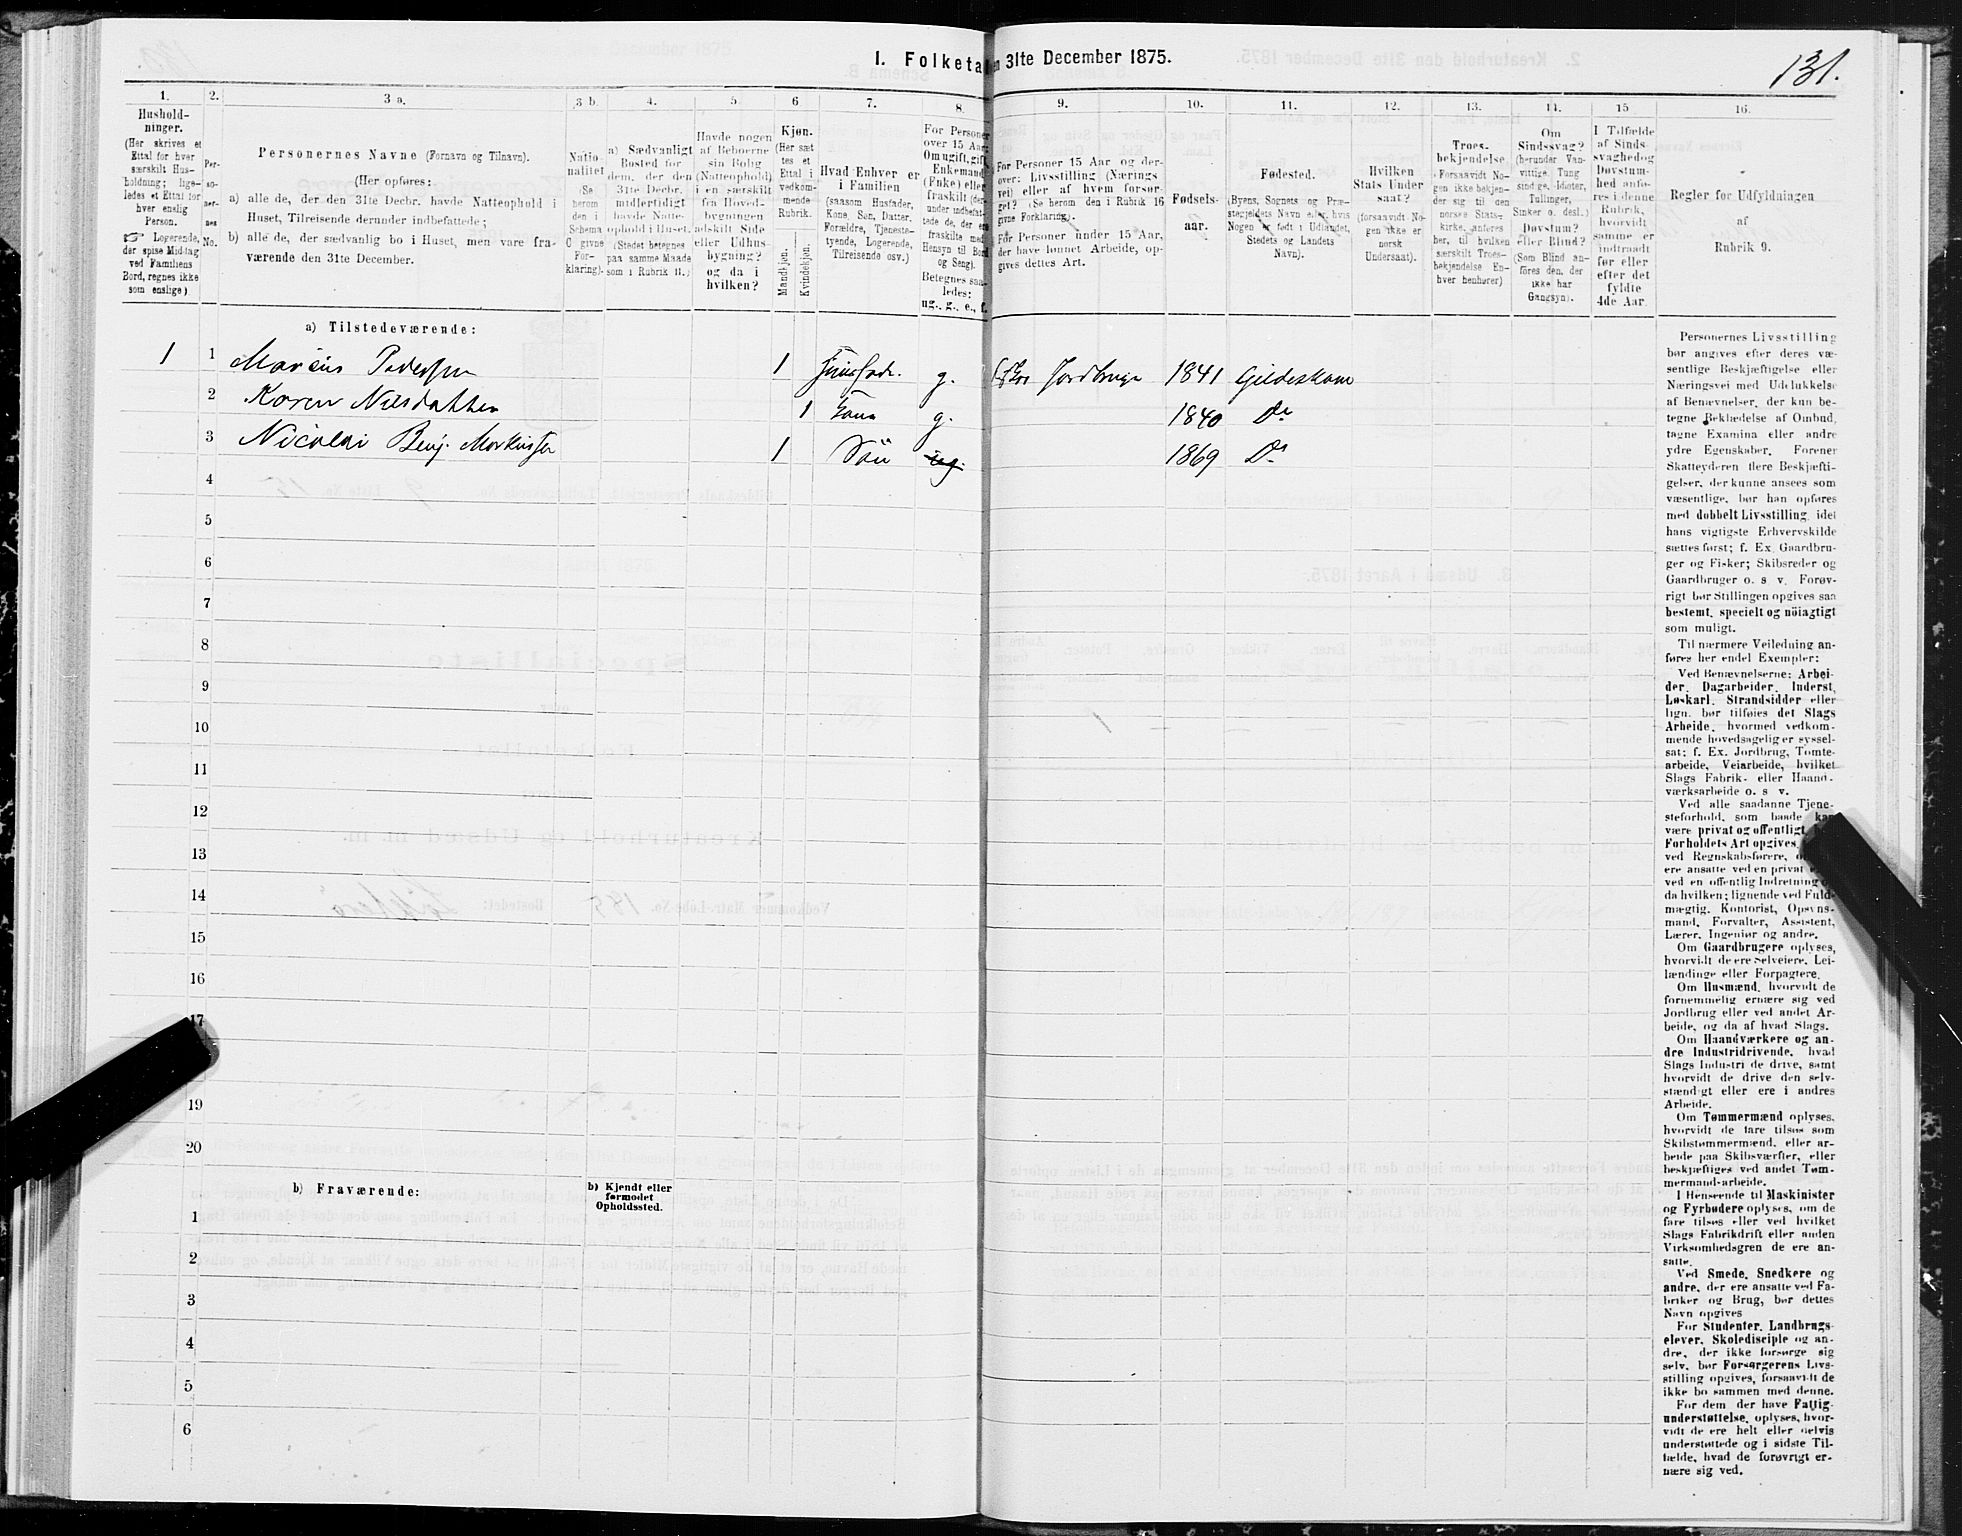 131.
1. Folketal den 31te December 1875.
1. 2. 3 a. 3 b. 4. 5. 6 7. 8. 9. 10. 11. 12. 13. 14. 15 16.
Husholdninger.
(Her skrives et
Ettal for hver
særskilt Husholdning; ligeledes
et Ettal for
hver enslig
Person.
☞ Logerende,
der spise Middag
ved Familiens
Bord, regnes ikke
som enslige)
Personernes
No.
Personernes Navne (Fornavn og Tilnavn).
(Her opføres:
a) alle de, der den 31te Decbr. havde Natteophold i
Huset, Tilreisende derunder indbefattede;
b) alle de, der sædvanlig bo i Huset, men vare fraværende
den 31te December.
Nationalitet
(Se
herom
den i
Schema
C givne
Forklaring).
a) Sædvanligt
Bosted for
dem, der den
31te Decbr.
midlertidigt
havde Natteophold
i Huset.
(Stedet betegnes
paa samme Maade
som i Rubrik 11.)
Havde nogen
af Beboerne
sin Bolig
(Natteophold)
i en særskilt
fra Hovedbygningen
adskilt Sideeller
Udhusbygning?
og da i
hvilken?
Kjøn.
(Her sættes
et
Ettal i
vedkommende
Rubrik.
Mandkjøn.
Kvindekjøn.
Hvad Enhver er
i Familien
(saasom Husfader,
Kone, Søn, Datter,
Forældre, Tjenestetyende,
Logerende,
Tilreisende osv.)
For Personer
over 15 Aar:
Om ugift, gift,
Enkemand
(Enke) eller
fraskilt
Betegnes saaledes:
ug., g., e., f.
For Personer 15 Aar og derover:
Livsstilling (Næringsvei)
eller af hvem forsørget?
(Se herom den i Rubrik 16
givne Forklaring.)
For Personer under 15 Aar,
der have lønnet Arbeide, opgives
dettes Art.
Fødselsaar.
Fødested.
(Byens, Sognets og Præstegjeldets
Navn eller, hvis
Nogen er født i Udlandet,
Stedets og Landets
Navn).
Hvilken
Stats Undersaat?
(forsaavidt Nogen
ikke er
norsk
Undersaat).
Troesbekjendelse
(Forsaavidt Nogen
ikke bekjender
sig til den
norske Statskirke,
anføres
her, til hvilken
særskilt Troesbekjendelse
Enhver
henhører)
Om
Sindssvag?
(herunder Vanvittige,
Tungsindige,
Idioter,
Tullinger,
Sinker o. desl.)
Døvstum?
eller Blind?
(Som Blind anføres
den, der
ikke har
Gangsyn).
I Tilfælde
af Sindssvaghed
og
Døvstumhed
anføres
i denne
Rubrik,
hvorvidt
samme er
indtraadt
før eller
efter det
fyldte
4de Aar.
Regler for Udfyldningen
af
Rubrik 9.
a) Tilstedeværende:
1 1 Marcus Pedersen 1 Huusfadr. g. Jordbruge 1841 Gildeskaal
2 Karen Nilsdatter 1 Kone g. 1840 Do
3 Nicolai Benj. Markussen 1 Søn ug. 1869 Do
4
5
6
7
8
9
10
11
12
13
14
15
16
17
19
20
b) Fraværende: b) Kjendt eller
formodet
Opholdssted.
1
2
3
4
5
6
Personernes Livsstilling
bør angives efter deres væsentlige
Beskjæftigelse eller
Næringsvei med Udelukkelse
af Benævnelser, der kun betegne
Beklædelse af Ombud,
tagne Examina eller andre
ydre Egenskaber. Forener
Skatteyderen flere Beskjæftigelser,
der kunne ansees som
væsentlige, bør han opføres
med dobbelt Livsstilling, idet
hans vigtigste Erhvervskilde
sættes først; f. Ex. Gaardbruger
og Fisker; Skibsreder og
Gaardbruger o. s v. Forøvrigt
bør Stillingen opgives saa
bestemt, specielt og nöiagtigt
som muligt.
Til nærmere Veiledning anføres
her endel Exempler:
Ved Benævnelserne: Arbeider,
Dagarbeider, Inderst,
Løskarl, Strandsidder eller
lign. bør tilføies det Slags
Arbeide, hvormed vedkommende
hovedsagelig er sysselsat;
f. Ex. Jordbrug, Tomtearbeide,
Veiarbeide, hvilket
Slags Fabrik- eller Haandværksarbeide
o. s v.
Ved alle saadanne Tjenesteforhold,
som baade
være privat og offentligt,
Forholdets Art opgives,
ved Regnskabsførere,
ere ansatte ved en privat
ved en offentlig Indretning
da hvilken; lignende ved Fuldmægtig,
Kontorist, Opsynsmand,
Forvalter, Assistent,
Lærer, Ingeniør og andre.
Om Gaardbrugere oplyses,
hvorvidt de ere Selveiere, Leilændinge
eller Forpagtere.
Om Husmænd, hvorvidt de
fornemmelig ernære sig ved
Jordbrug eller ved andet Arbeide,
og da af hvad Slags.
Om Haandværkere og andre
Industridrivende, hvad
Slags Industri de drive, samt
hvorvidt de drive den selvstændigt
eller ere i andres
Arbeide.
Om Tømmermænd oplyses,
hvorvidt de fare tilsøs som
Skibstømmermænd, eller arbeide
paa Skibsværfter, eller
beskjæftiges ved andet Tømmermand-arbeide.
I Henseende til Maskinister
og Fyrbødere oplyses, om de
fare tilsøs eller ved hvilket
Slags Fabrikdrift eller anden
Virksomhedsgren de ere ansatte.
Ved Smede, Snedkere og
andre, der ere ansatte ved Fabriker
og Brug, bør dettes
Navn opgives
For Studenter, Landbrugselever,
Skoledisciple og andre,
der ikke forsørge sig
selv, bør Forsørgerens Livsstilling
opgives, forsaavidt de
ikke bo sammen med denne.
For dem, der have Fattigunderstøttelse,
oplyses, hvorvidt
de ere helt eller delvis
understøttede og i sidste Tilfælde,
hvad de forøvrigt ernære
sig ved.